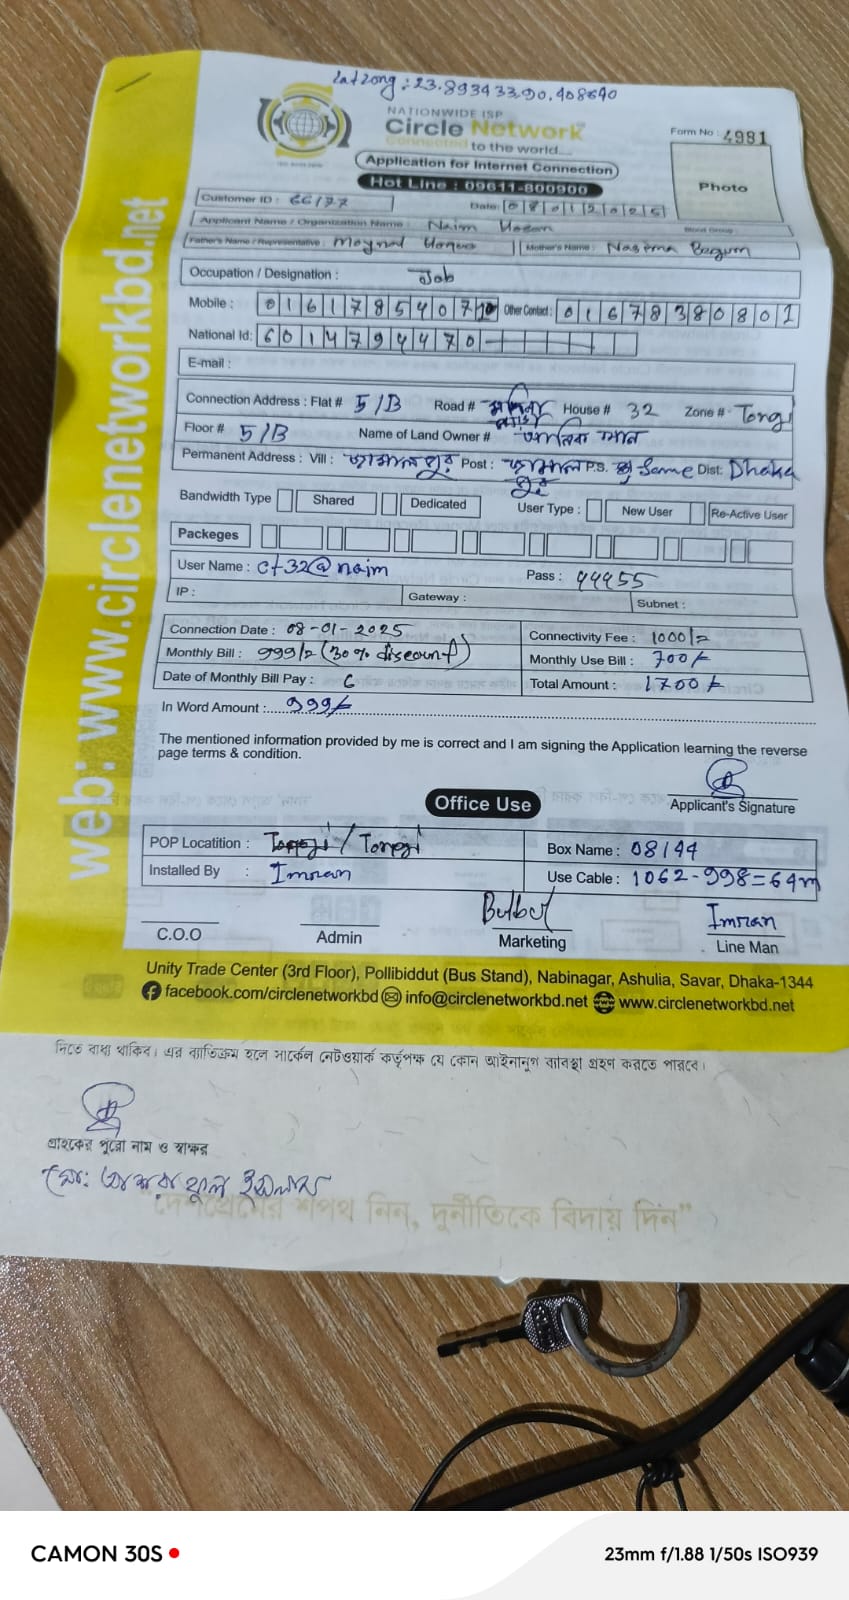 Lat Long : 23.893433 90.408640
NATIONWIDE ISP
Circle Network
Connected to the world....
Form No : 4981
Application for Internet Connection
Hot Line : 09611-800900
Photo
Customer ID : 66177 Date: 08012025
Applicant Name / Organization Name : Naim Hosan Blood Group :
Father's Name / Representative : Moynal Hoque Mother's Name : Nasima Begum
Occupation / Designation : Job
Mobile : 01617854077 Other Contact : 01678380801
National Id: 6014794470
E-mail :
Connection Address : Flat # 5/B Road # House # 32 Zone # Tongi
Floor # 5/B Name of Land Owner #
Permanent Address : Vill : জামালপুর Post : জামালপুর P.S. Same Dist: Dhaka
Bandwidth Type Shared Dedicated User Type : New User Re-Active User
Packeges
User Name : ct32@naim Pass : 44455
IP : Gateway : Subnet :
Connection Date : 08-01-2025 Connectivity Fee : 1000/=
Monthly Bill : 999/= (30% discount) Monthly Use Bill : 700/-
Date of Monthly Bill Pay : 6 Total Amount : 1700/-
In Word Amount : 999/-
The mentioned information provided by me is correct and I am signing the Application learning the reverse
page terms & condition.
Applicant's Signature
Office Use
POP Locatition : Tongi / Tongi Box Name : 08/44
Installed By : Imran Use Cable : 1062-998=64m
Bulbul Imran
C.O.O Admin Marketing Line Man
Unity Trade Center (3rd Floor), Pollibiddut (Bus Stand), Nabinagar, Ashulia, Savar, Dhaka-1344
facebook.com/circlenetworkbd info@circlenetworkbd.net www.circlenetworkbd.net
web: www.circlenetworkbd.net
দিতে বাধ্য থাকিব। এর ব্যতিক্রম হলে সার্কেল নেটওয়ার্ক কর্তৃপক্ষ যে কোন আইনানুগ ব্যবস্থা গ্রহণ করতে পারবে।
গ্রাহকের পুরো নাম ও স্বাক্ষর
"দেশপ্রেমের শপথ নিন, দুর্নীতিকে বিদায় দিন"
CAMON 30S 23mm f/1.88 1/50s ISO939